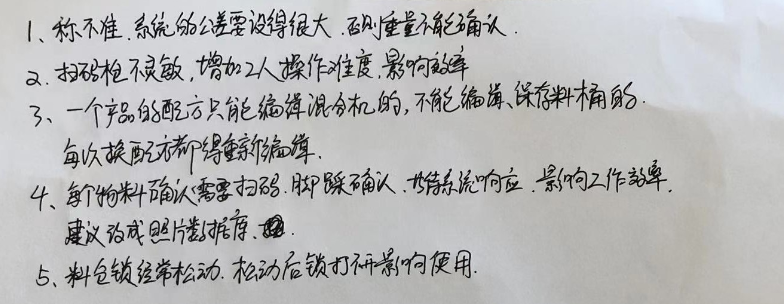 1、称不准.系统的公差要设得很大.否则重量不能确认.
2.扫码枪不灵敏,增加2人操作难度,影响效率
3、一个产品的配方只能编缉混分机的,不能编缉、保存料桶的.
每次换配方都得重新编缉.
4、每个物料确认需要扫码.脚踩确认.等待系统响应.影响工作效率.
建议改成照片数据库、
5、料仓锁经常松动.松动后锁打不开影响使用.